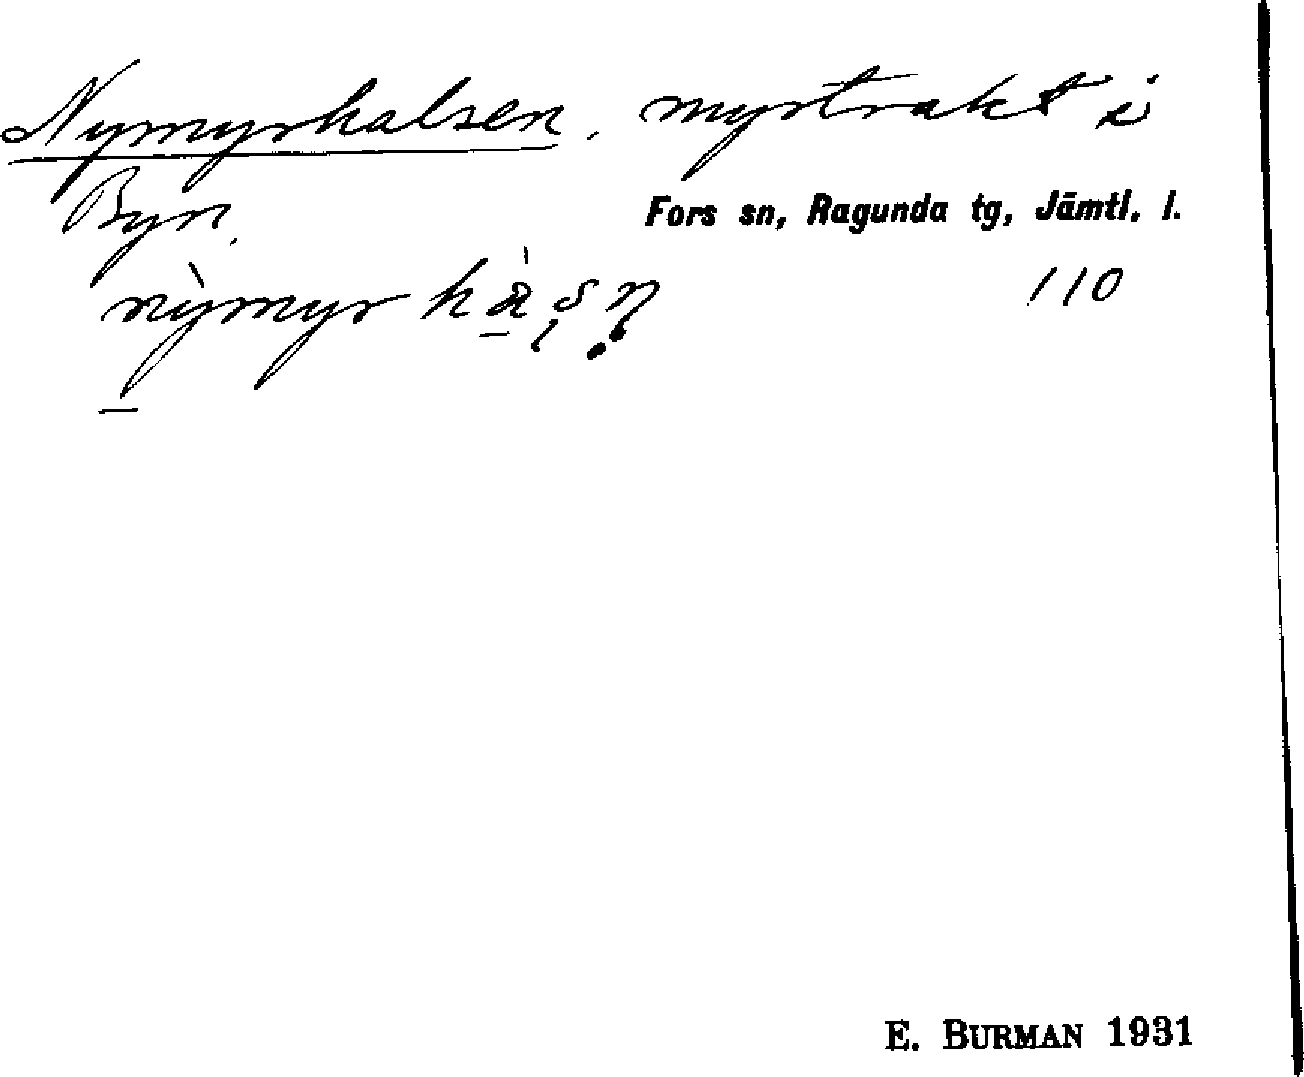 Nymyrhalsen, myrtrakt i
Byn.
Fors sn, Ragunda tg, Jämtl. l.
110
E. BURMAN 1931